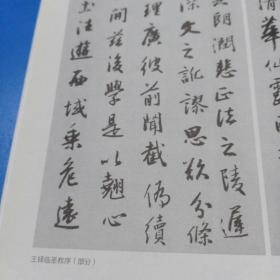 清華仙露
其朗潤悲正法之陵遲
深文之訛謬思欲分條
理廣彼前聞截偽續
開茲後學是以翹心
土法遊西域乘危遠
王铎临圣教序（部分）